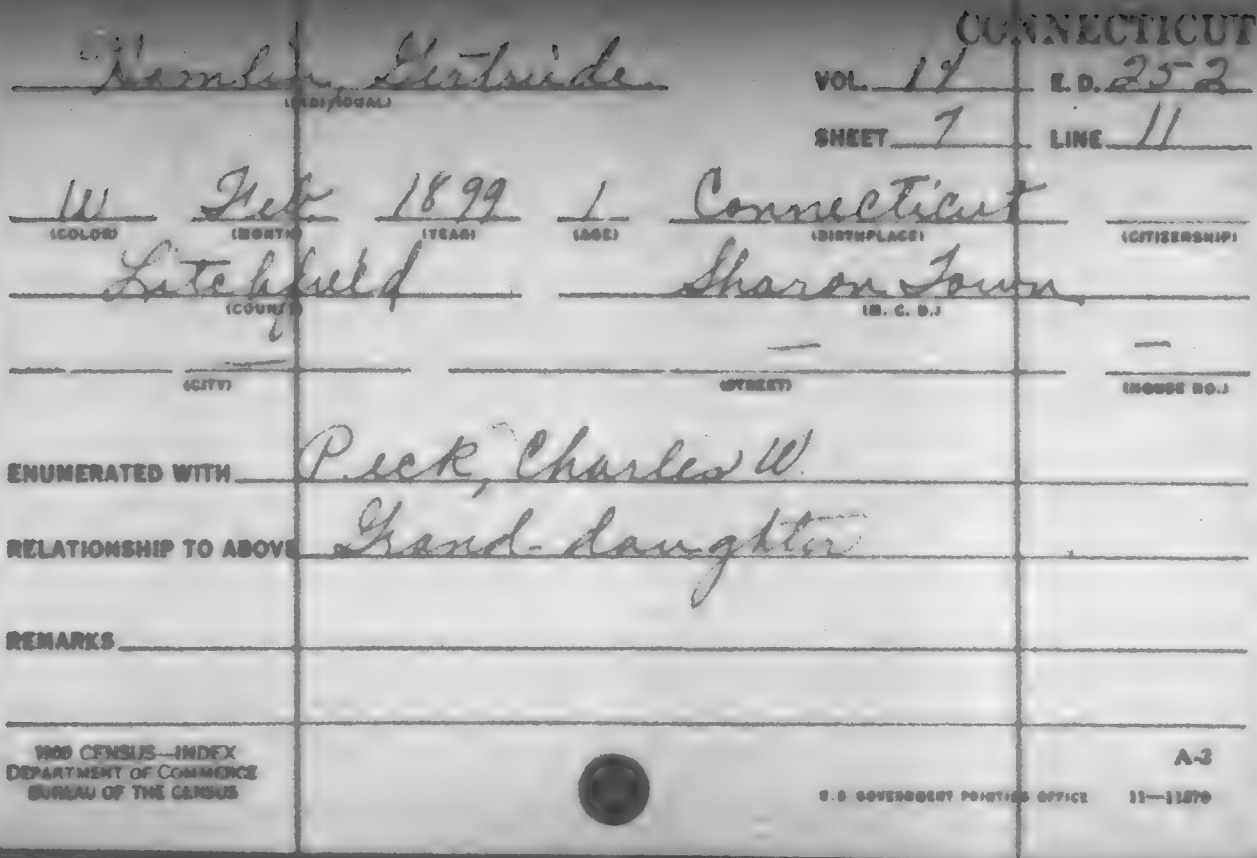 CONNECTICUT
Hamlin, Gertrude VOL. 17 E. D. 252
(INDIVIDUAL)
SHEET 7 LINE 11
W Feb 1899 1 Connecticut
(COLOR) (MONTH) (YEAR) (AGE) (BIRTHPLACE) (CITIZENSHIP)
Litchfield Sharon Town
(COUNTY) (M. C. D.)
— — —
(CITY) (STREET) (HOUSE NO.)
ENUMERATED WITH Peck, Charles W.
RELATIONSHIP TO ABOVE Grand-daughter
REMARKS
1900 CENSUS—INDEX
DEPARTMENT OF COMMERCE
BUREAU OF THE CENSUS
A-2
U.S. GOVERNMENT PRINTING OFFICE 11—11870